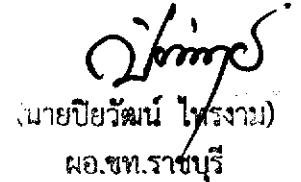 (นายปิยวัฒน์ ไทรงาม)
ผอ.ขท.ราชบุรี